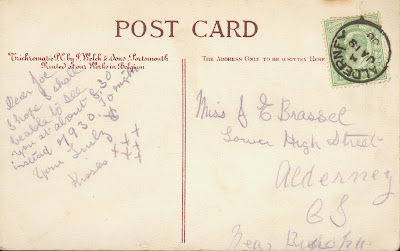 POST CARD
Trichromatic P.C. by J. Welch & Sons. Portsmouth
Printed at our Works in Belgium
THE ADDRESS ONLY TO BE WRITTEN HERE
ALDERNEY
Dear Joe
I hope I shall
be able to see
you at about 8.30
instead of 9.30.
Your Emily
Kisses +++
Miss J E Brassel
Lower High Street
Alderney
CI
Near